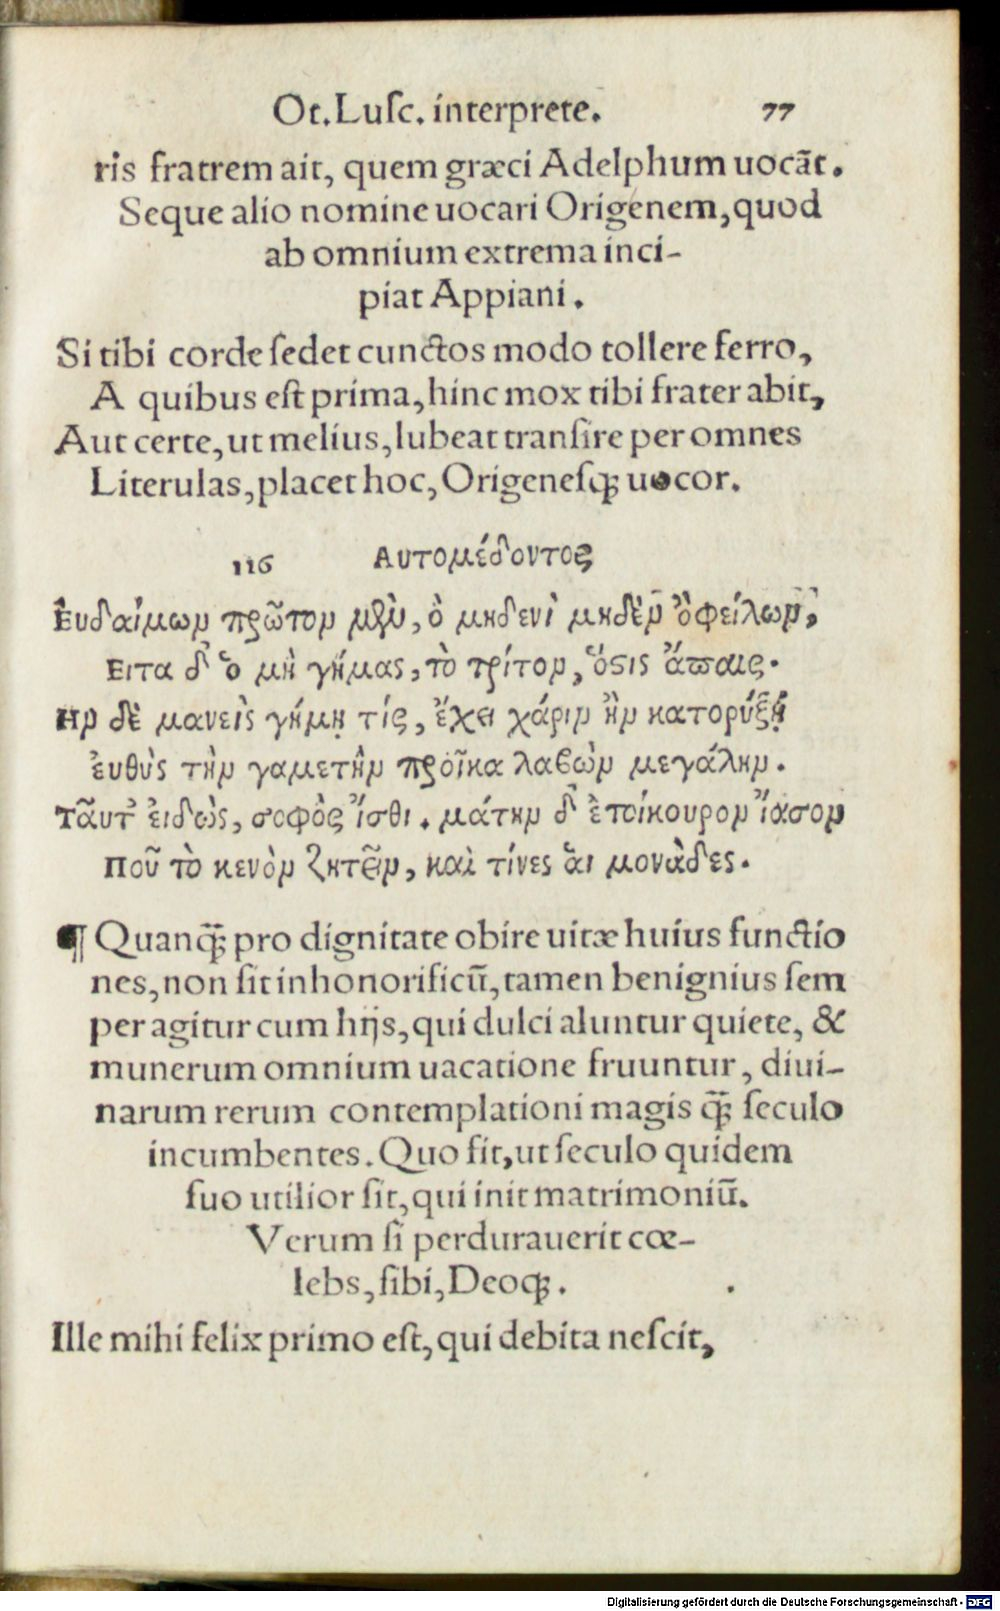 Ot. Luſc. interprete. 77
ris fratrem ait, quem græci Adelphum uocāt.
Seque alio nomine uocari Origenem, quod
ab omnium extrema inci-
piat Appiani.
Si tibi corde ſedet cunctos modo tollere ferro,
A quibus eſt prima, hinc mox tibi frater abit,
Aut certe, ut melius, lubeat tranſire per omnes
Literulas, placet hoc, Origeneſq; uocor.
116 Αυτομέδοντος
Ἐυδαίμων πρῶτον μὲν, ὁ μηδενὶ μηδὲν ὀφείλων,
Ειτα δ' ὁ μὴ γήμας, τὸ τρίτον, ὅστις ἄπαις.
Ην δὲ μανεὶς γήμῃ τίς, ἔχει χάριν ἢν κατορύξῃ
ἐυθὺς τὴν γαμετὴν προῖκα λαβὼν μεγάλην.
Τᾶυτ' ἐιδὼς, σοφὸς ἴσθι. μάτην δ' ἐπίκουρον ἔασον
Ποῦ τὸ κενὸν ζητεῖν, καὶ τίνες ἁι μονάδες.
¶ Quanq̄; pro dignitate obire uitæ huius functio
nes, non ſit inhonorificū, tamen benignius ſem
per agitur cum hijs, qui dulci aluntur quiete, &
munerum omnium uacatione fruuntur, diui-
narum rerum contemplationi magis q̄; ſeculo
incumbentes. Quo fit, ut ſeculo quidem
ſuo utilior ſit, qui init matrimoniū.
Verum ſi perdurauerit cœ-
lebs, ſibi, Deoq;.
Ille mihi felix primo eſt, qui debita neſcit,
Digitalisierung gefördert durch die Deutsche Forschungsgemeinschaft - DFG